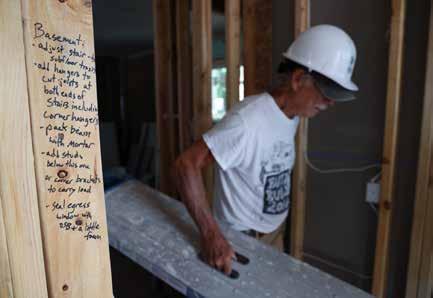 Basement:
- adjust stair - to
subfloor transi
- add hangers to
cut joists at
both ends of
Stairs including
Corner hangers
- pack beam
with Mortar
- add studs
below this one
or corner brackets
to carry load
- seal egress
window with
OSB + a little
foam